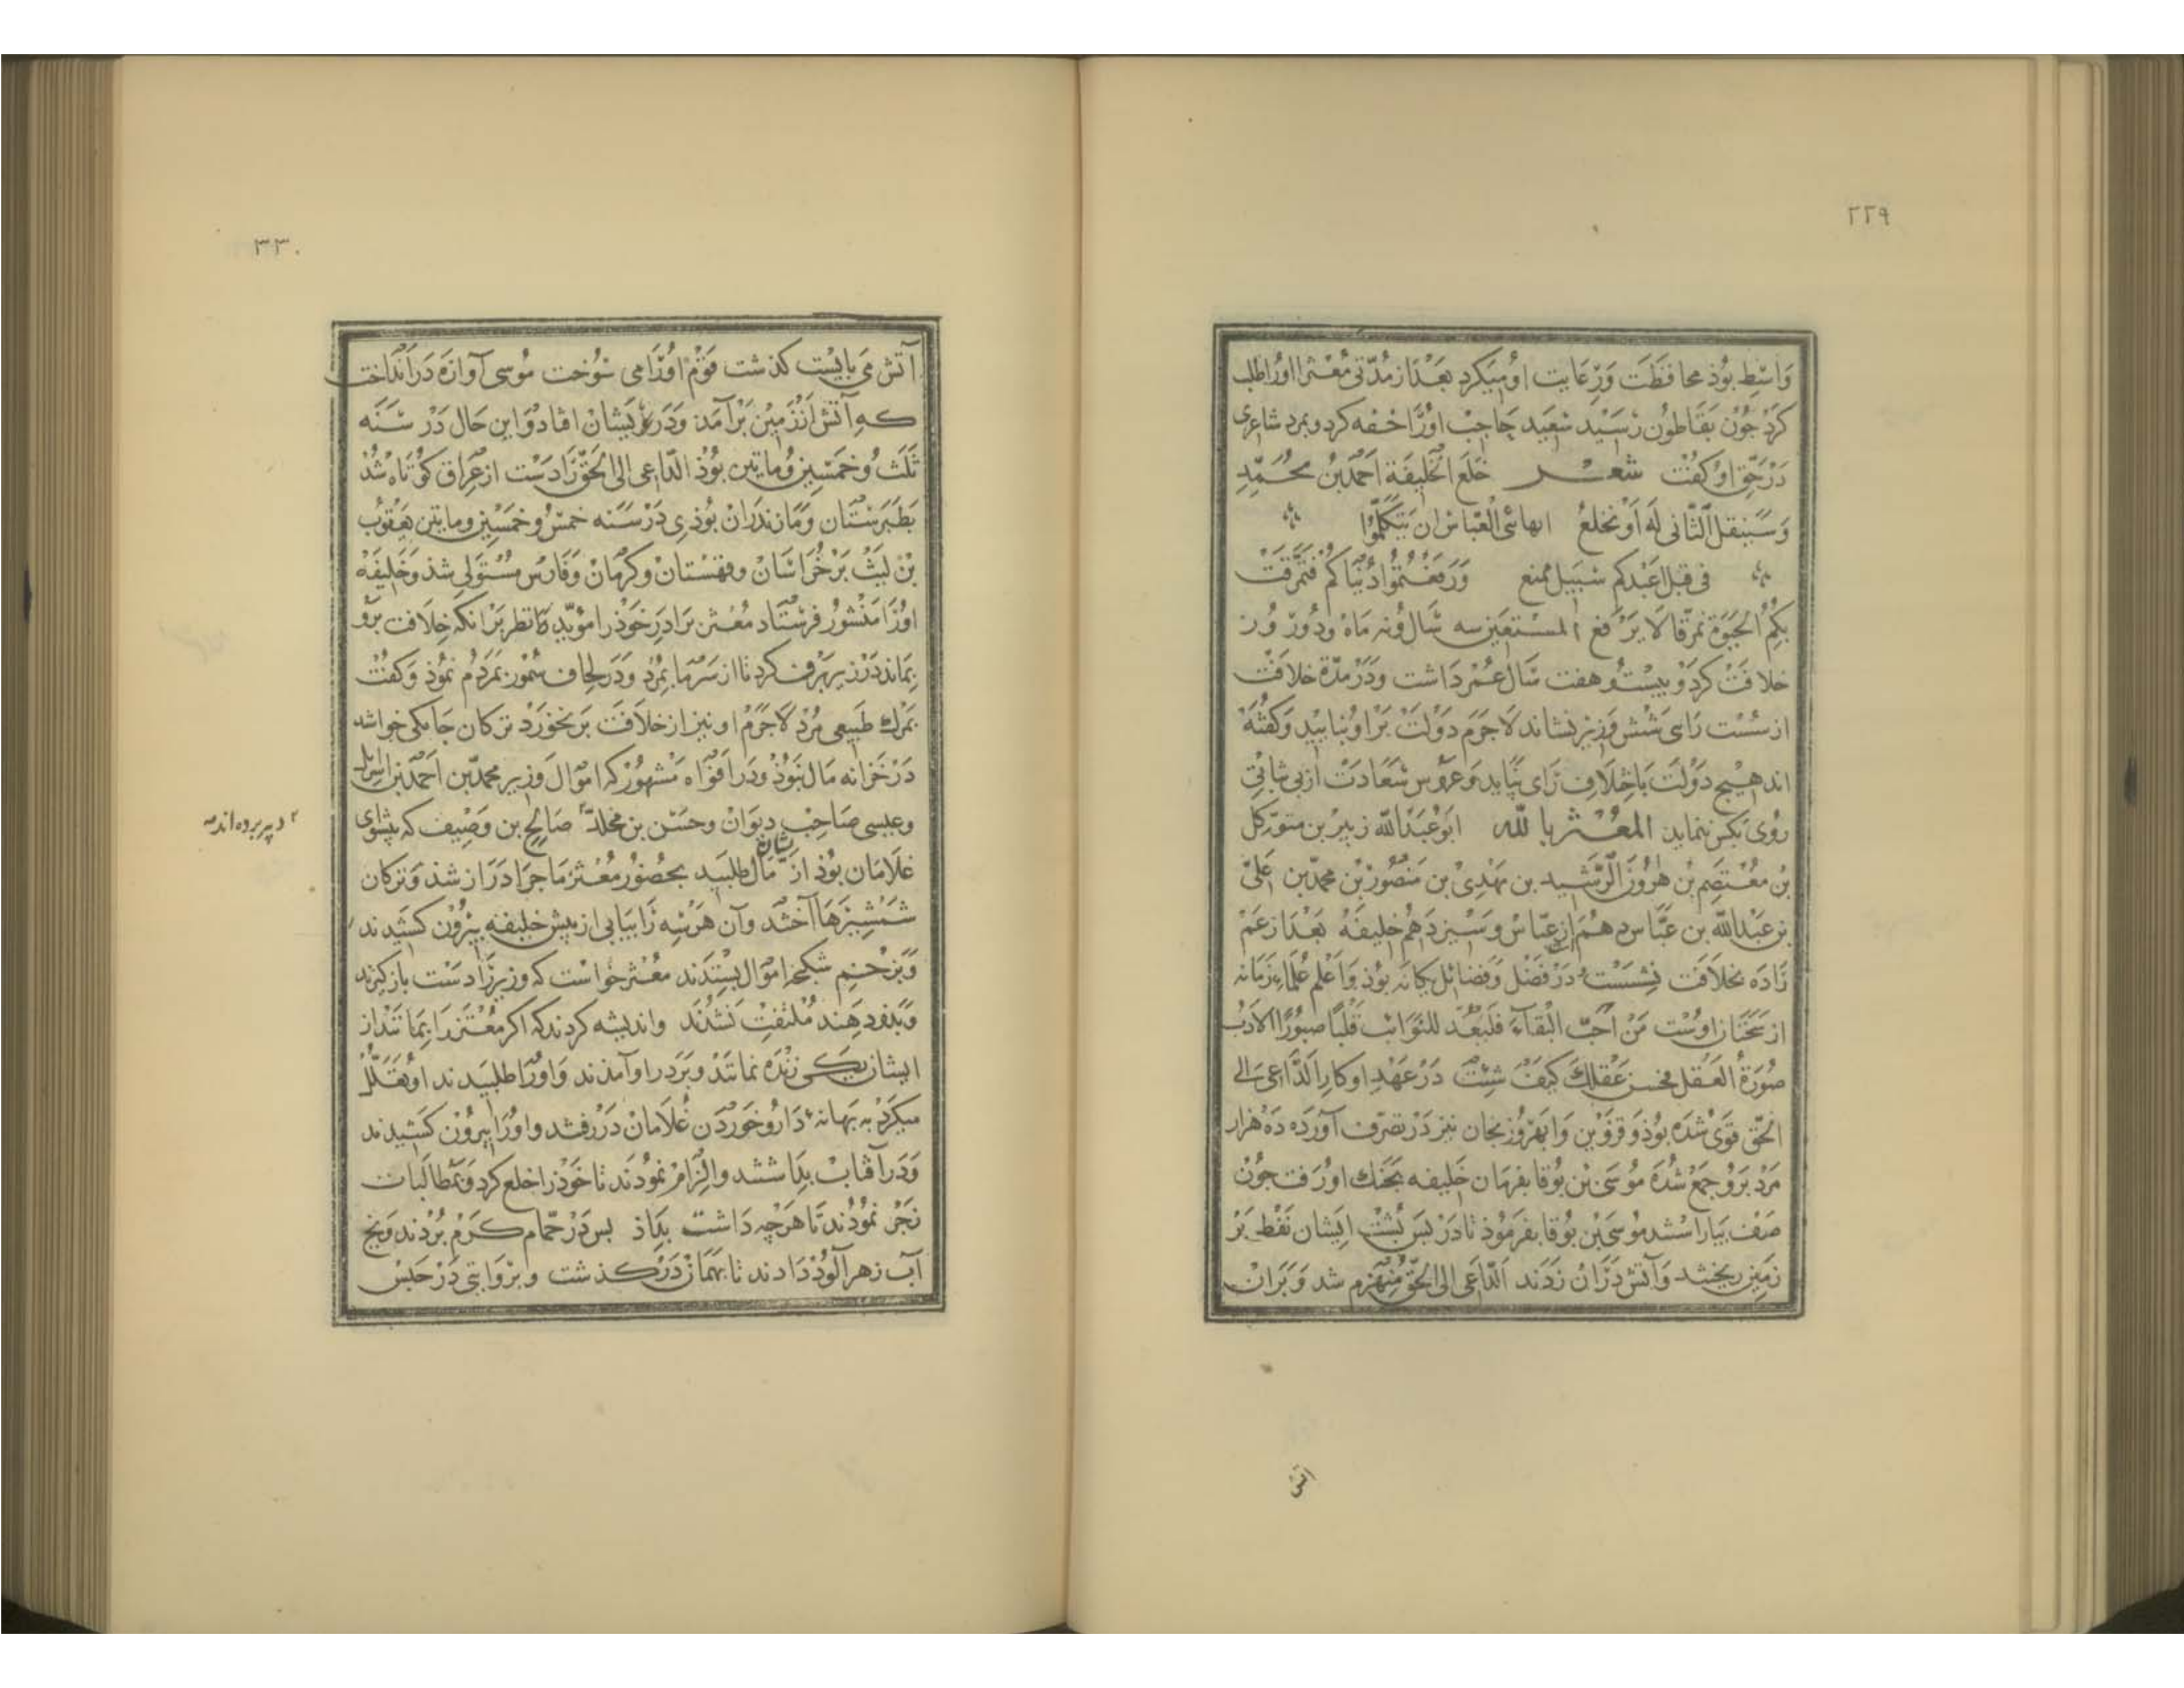 ٣٢٩
واسط بوذ محافظت ورعایت او میکرد بعد از مدتی معتز اورا طلب
کرد جون بقاطون رسید سعید حاجب اورا خفه کرد وبمرد شاعری
در حق او کفت شعر خلع الخلیفة احمد بن محمد
وسینقل الثانی له او نخلع ایها بنی العباس ان یتکلموا
فی قبل اعبدکم سبیل ممنع ورفعتموا دنیاکم فتمزقت
بکم الحیوة تمزقا لا یرفع المستعین سه سال ونه ماه ودو روز
خلافت کرد وبیست وهفت سال عمر داشت ودر مدة خلافت
از سست رای شش وزیر نشاند لاجرم دولت برا ونپایید وکفته
اند هیچ دولت با ختلاف رای نپاید وعروس سعادت از بی ثباتی
روی بکس ننماید المعتز بالله ابو عبدالله زبیر بن متوکل
بن معتصم بن هرون الرشید بن مهدی بن منصور بن محمد بن علی
بن عبدالله بن عباس دهم از عباس وسیزدهم خلیفه بعد از عم
زاده بخلافت نشست در فضل وفضائل یکانه بوذ واعلم علماء زمانه
از سخنان اوست من احب البقاء فلیعد للنوائب قلبا صبورا الادب
صورة العقل فحسن عقلک کیف شئت در عهد او کار الداعی الی
الحق قوی شده بوذ وقزوین وابهر وزنجان نیز در تصرف آورده ده هزار
مرد برو جمع شده موسی بن بوقا بفرمان خلیفه بجنک او رفت جون
صف بیاراستند موسی بن بوقا بفرموذ تا در بس بشت ایشان نفط بر
زمین ریختند وآتش دران زدند الداعی الی الحق منهزم شد وبران
آتش
٣٣٠
آتش می بایست کذشت قوم اورا می سوخت موسی آوازه در انداخت
که آتش از زمین برآمد ودر ایشان افتاد واین حال در سنه
ثلث وخمسین ومایتین بوذ الداعی الی الحق را دست از عراق کوتاه شد
بطبرستان ومازندران بوذی در سنه خمس وخمسین ومایتین یعقوب
بن لیث بر خراسان وقهستان وکرمان وفارس مستولی شد وخلیفه
اورا منشور فرستاد معتز برادر خوذ را مؤید تا نظر برانکه خلافت برو
بماند در زیر برف کرد تا از سرما بمرد ودر لحاف سمور بمردم نموذ وکفت
بمرک طبیعی مرد لاجرم او نیز از خلافت برنخورد ترکان جامکی خواستند
در خزانه مال نبوذ ودر افواه مشهور که اموال وزیر محمد بن احمد بن اسرائیل
وعیسی صاحب دیوان وحسن بن مخلد صالح بن وصیف که پیشوای
٢ دبیر بوده اند
غلامان بوذ از ایشان مال طلبید بحضور معتز ماجرا دراز شد وترکان
شمشیرها آختند وآن هر سه را بیابی از پیش خلیفه بیرون کشیدند
وبزخم شکنجه اموال بستدند معتز خواست که وزیر را دست باز کیرند
وبدو دهند ملتفت نشدند واندیشه کردند که اکر معتز را بماند از
ایشان یکی زنده نماند وبر در او آمدند واورا طلبیدند او تعلل
میکرد به بهانه دارو خوردن غلامان در رفتند واورا بیرون کشیدند
ودر آفتاب بداشتند والزام نمودند تا خوذ را خلع کرد وبمطالبات
زجر نمودند تا هرچه داشت بداذ بس در حمام کرم بردند ویخ
آب زهر آلوذ دادند تا بهمان درکذشت وبروایتی در حبس